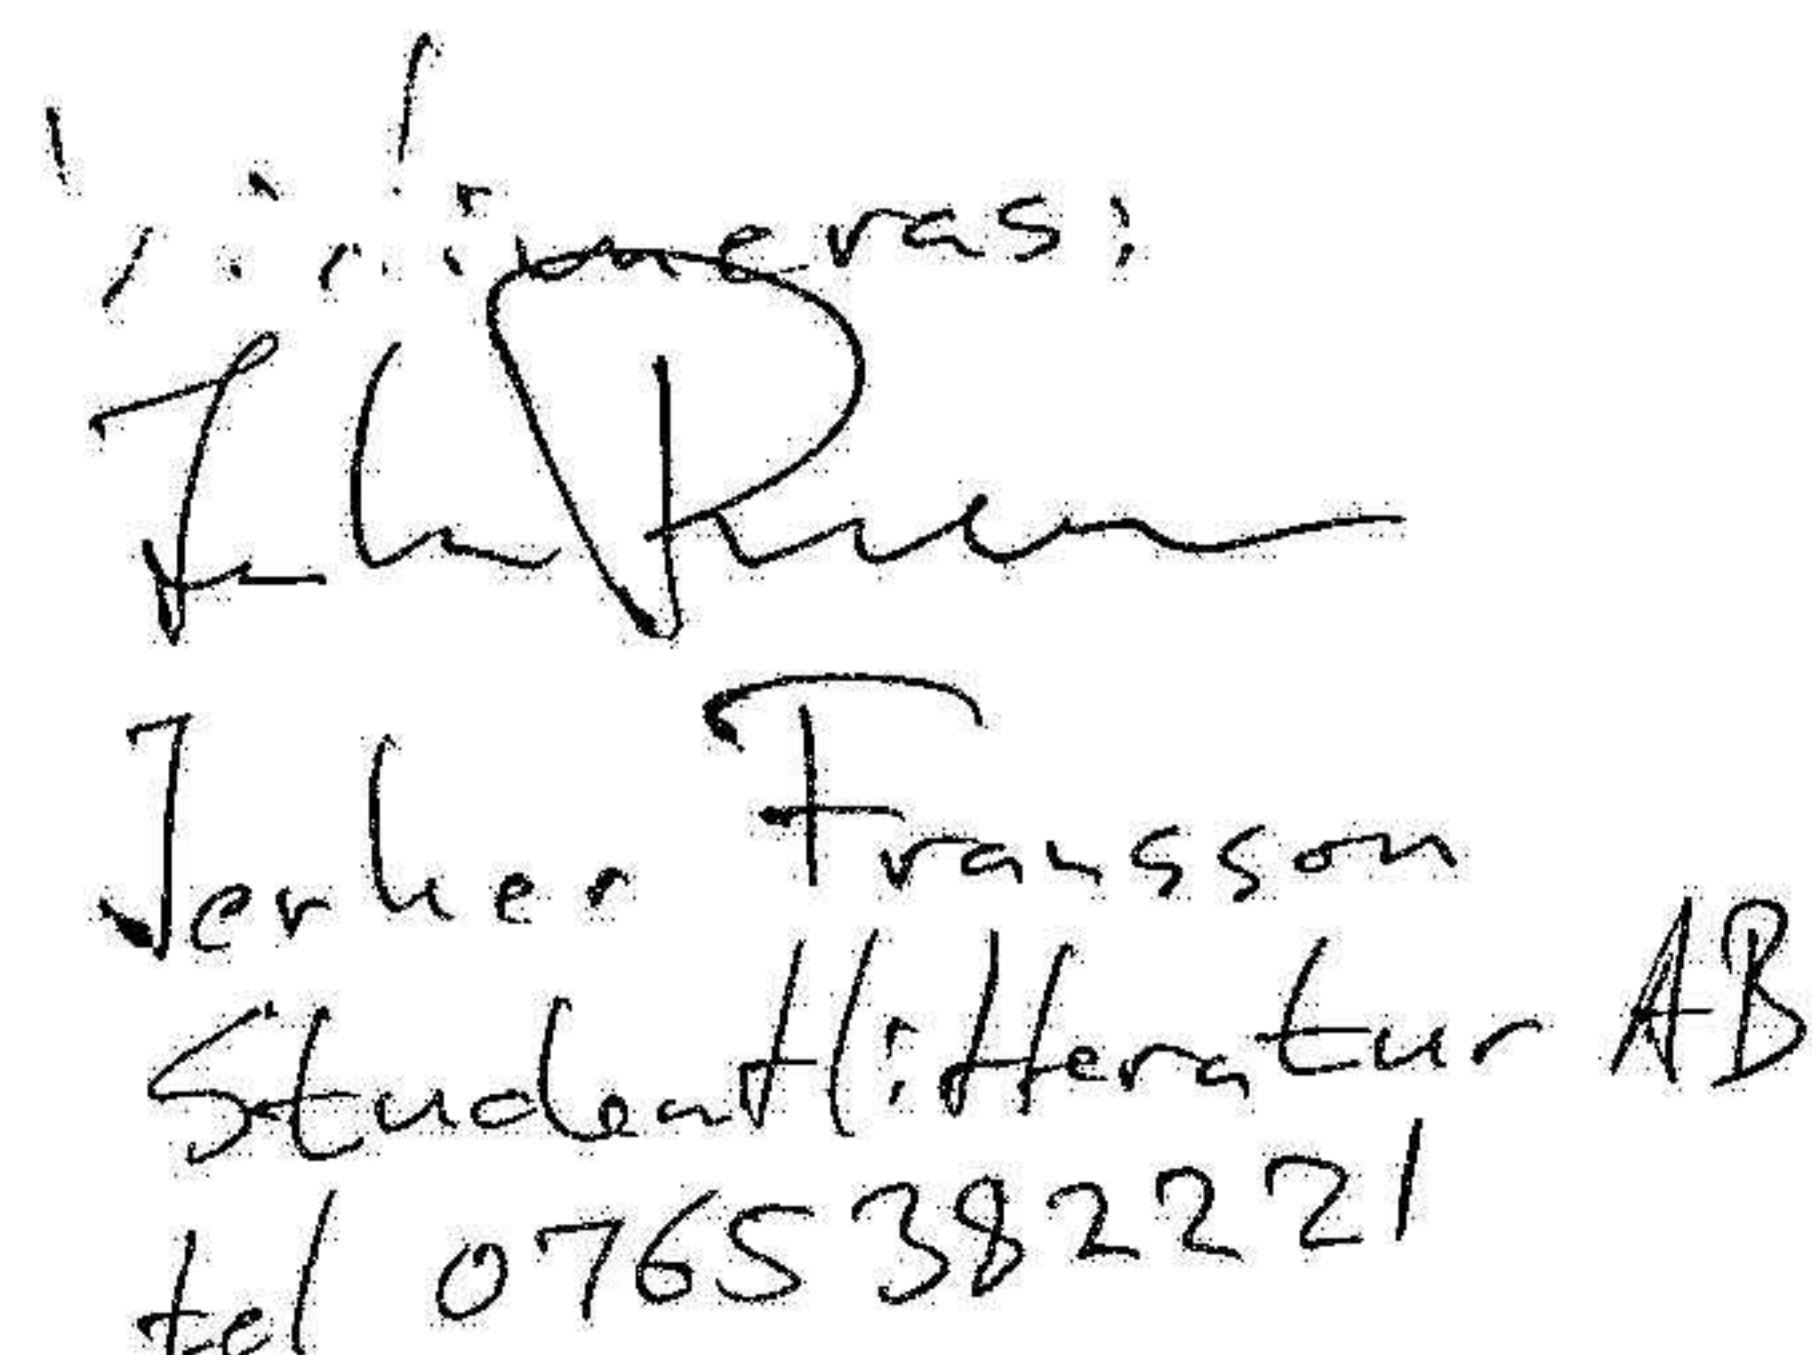 Vidimeras:
Jerker Fransson
Studentlitteratur AB
tel 0765382221